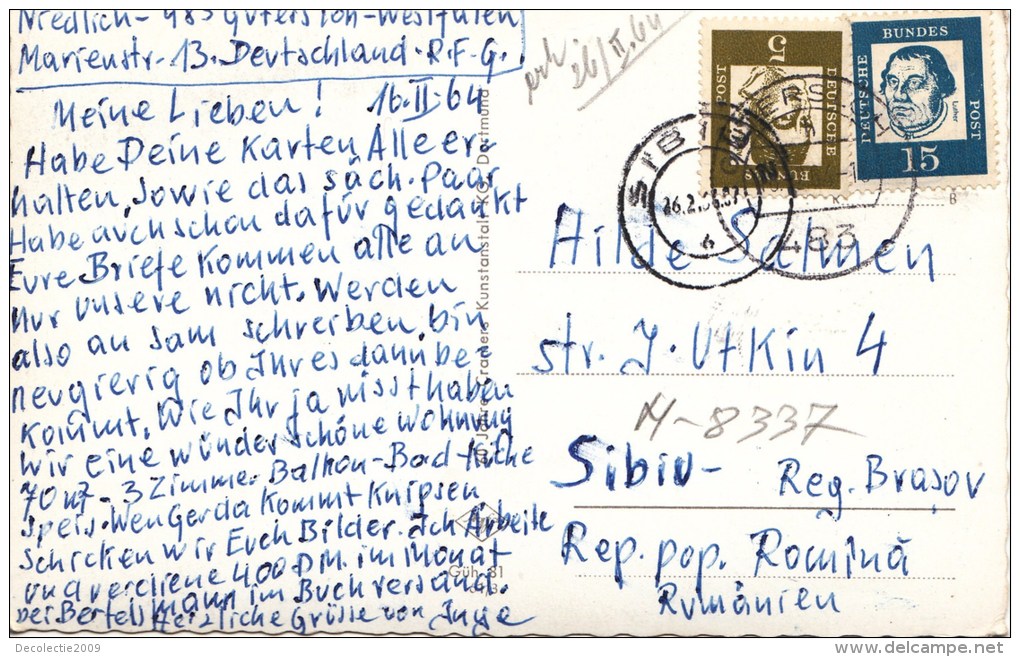 Niedlich - 483 Gütersloh - Westfalen
Marienstr - 13. Deutschland. R.F.G.
Meine Lieben! 16.II.64
Habe Deine Karten Alle er
halten, sowie das säch. Paar
Habe auch schon dafür gedankt
Eure Briefe Kommen alle an
Nur unsere nicht. Werden
also an Sam schreiben, bin
neugierig ob Ihres dann be
kommt. Wie Ihr ja wisst haben
wir eine wunderschöne Wohnung
70 m² - 3 Zimmer - Balkon - Bad - Küche
speis. Wen Gerda Kommt Knipsen
schicken wir Euch Bilder. Ich Arbeite
und verdiene 400 DM. im Monat
bei Bertelsmann im Buchversand.
Herzliche Grüsse von Inge
Jahre Cramers Kunstanstalt KG, Dortmund
Güh. 81
26/II.64
5
POST
DEUTSCHE
BUNDES
DEUTSCHE
BUNDES
POST
Luther
15
SIBIU
26.2.64.07
483
B
Hilde Salmen
str. J. Utkin 4
M-8337
Sibiu -
Reg. Brașov
Rep. pop. Romînă
Rumänien
Decolectie2009